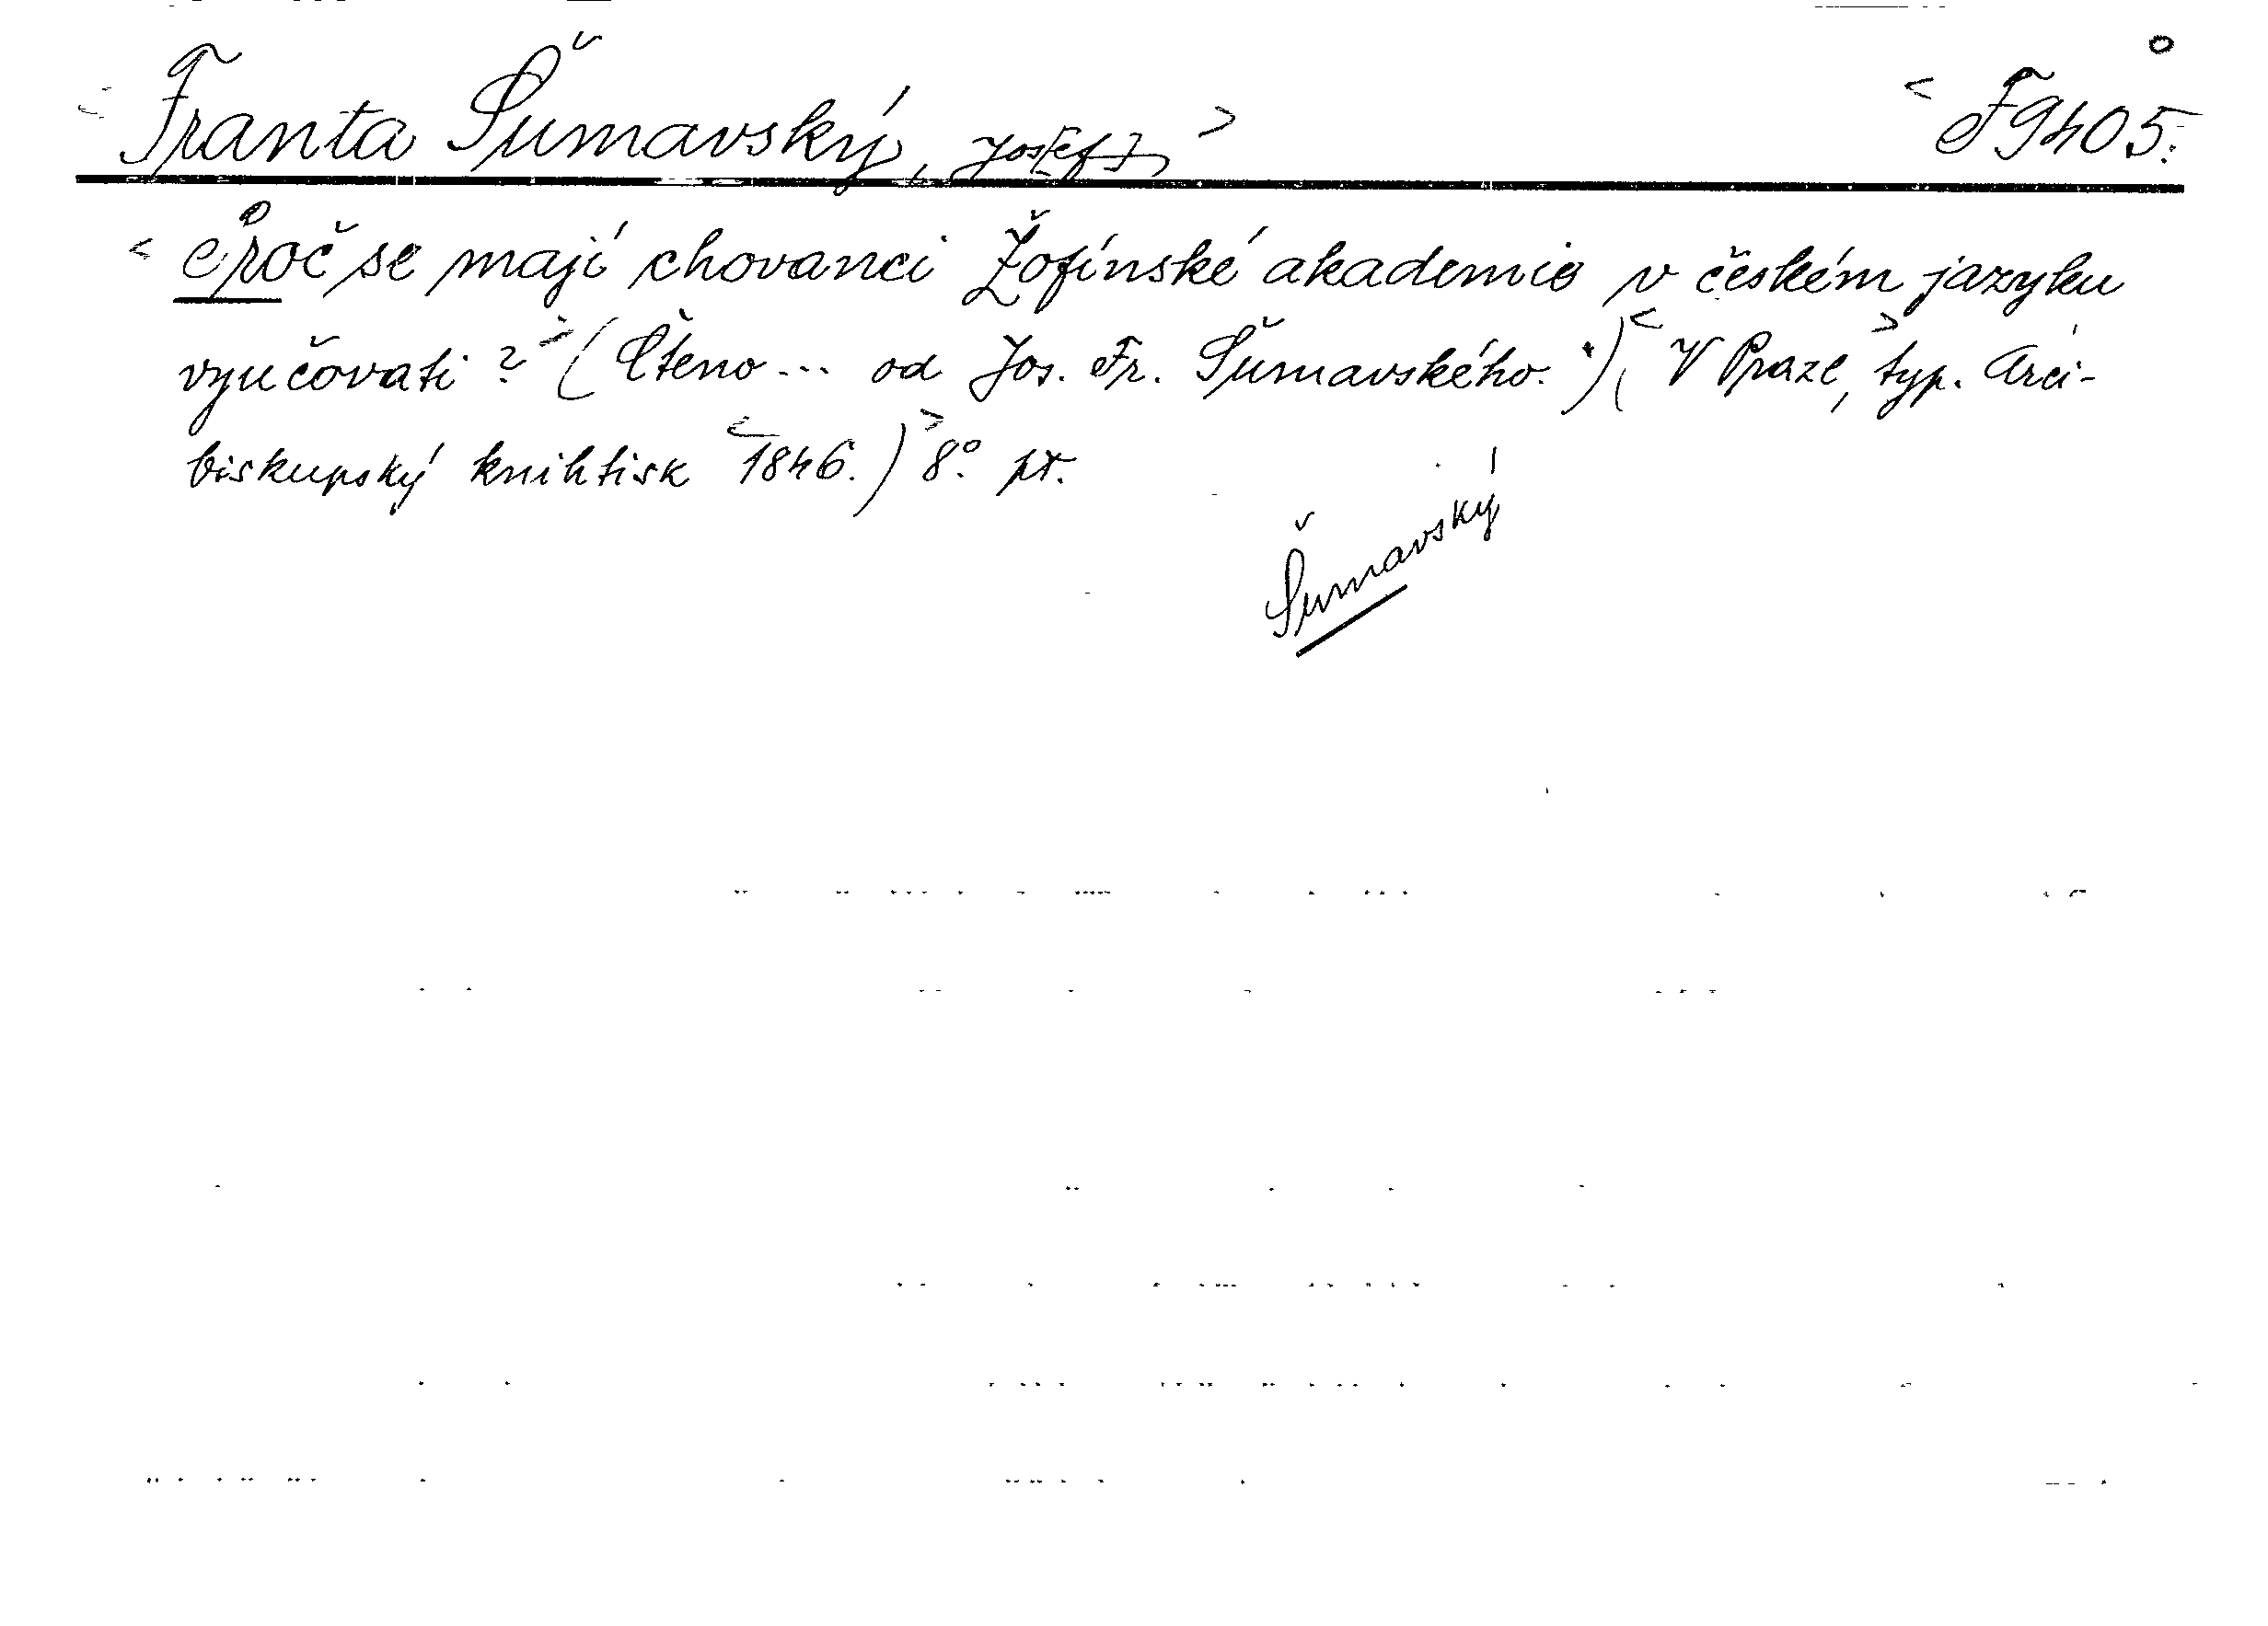 < Franta Šumavský, Jos[ef] > < F 9405.
< Proč se mají chovanci Žofínské akademie v českém jazyku
vyučovati? > (Čteno... od Jos. Fr. Šumavského.) (< V Praze, > typ. Arci-
biskupský knihtisk < 1846.) > 8°. pt.
Šumavský